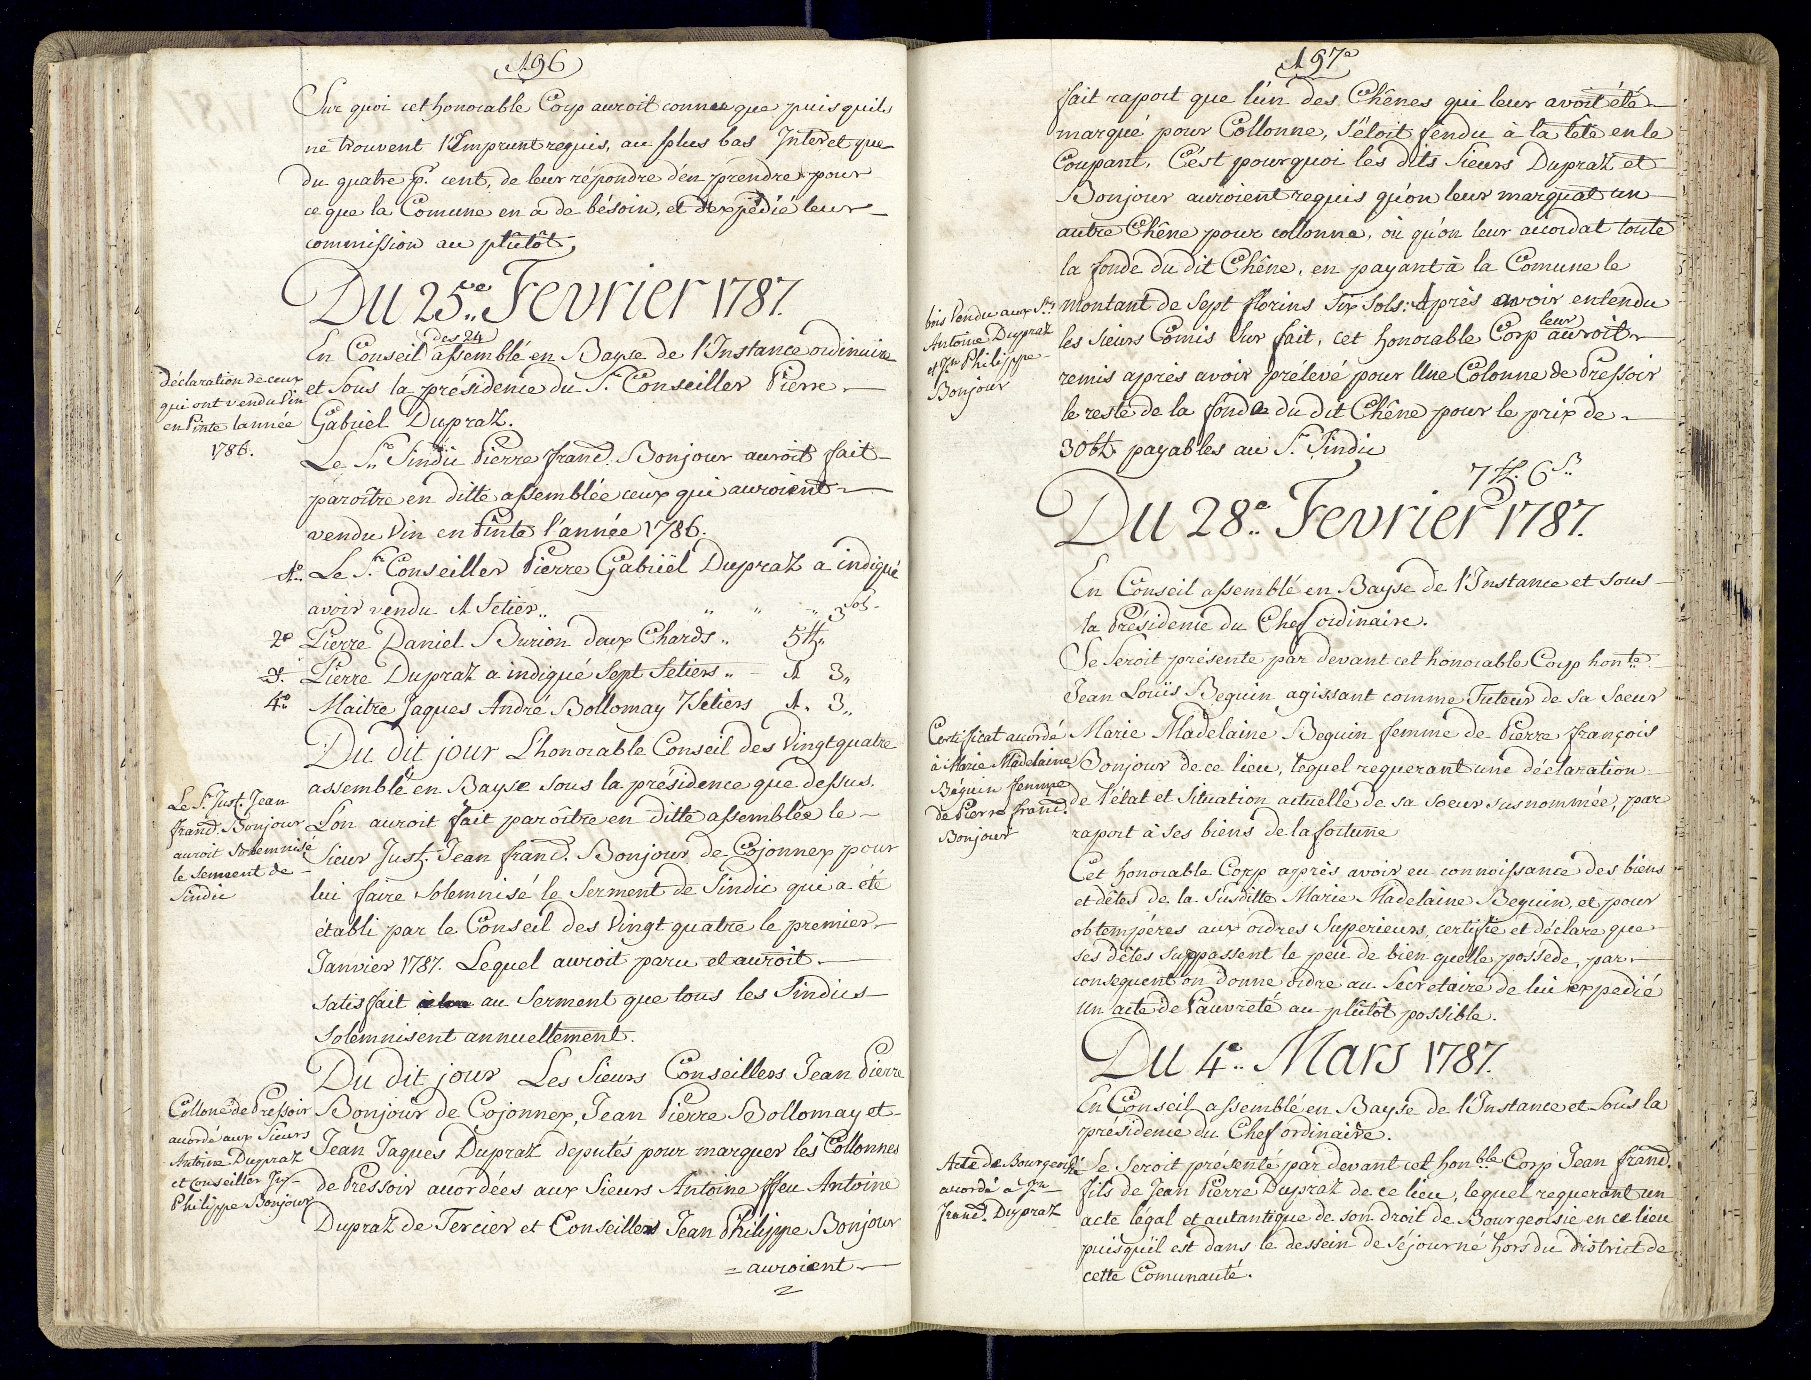 196
Sur quoi cet honorable Corp auroit connu que puis quils
ne trouvent l'Emprunt requis, au plus bas Interet que
du quatre p.r cent, de leur répondre d'en prendre pour
ce que la Comune en a de bésoin, et d'expédié leur
commission au plûtôt,
Du 25.e Fevrier 1787.
des 24
En Conseil assemblé en Bayse de l'Instance ordinaire
Déclaration de ceux
qui ont vendu Vin
en Pinte lannée
1786.
et sous la présidence du S.r Conseiller Pierre
Gabriel Dupraz.
Le S.r Sindic Pierre franc.s Bonjour auroit fait
paroître en ditte assemblée ceux qui auroient
vendu Vin en Pinte l'année 1786.
1.o Le S.r Conseiller Pierre Gabriël Dupraz a indiqué
avoir vendu 1 Setier.. " " " 3 Sols
2.o Pierre Daniel Burion deux Chards.. 5 ₶..
3.o Pierre Dupraz a indiqué Sept Setiers.. 1 3..
4.o Maitre Jaques André Bollomay 7 Setiers 1. 3..
Du dit jour L'honorable Conseil des Vingtquatre
assemblé en Bayse sous la présidence que dessus.
Le S.r Just. Jean
franc.s Bonjour
auroit solemnise
le serment de
Sindic
L'on auroit fait paroître en ditte assemblée le
Sieur Just. Jean franc.s Bonjour de Cojonnex pour
lui faire solemnisé le Serment de Sindic qui a été
établi par le Conseil des Vingt quatre le premier
Janvier 1787. Lequel auroit paru et auroit
satisfait au Serment que tous les Sindics
solemnisent annuellement.
Du dit jour Les Sieurs Conseillers Jean Pierre
Collone de Pressoir
accordé aux Sieurs
Antoine Dupraz
et Conseiller Jn
Philippe Bonjour
Bonjour de Cojonnex, Jean Pierre Bollomay et
Jean Jaques Dupraz deputés pour marquer les Collonnes
de Pressoir accordées aux Sieurs Antoine ffeu Antoine
Dupraz de Tercier et Conseiller Jean Philippe Bonjour
= auroient
197
fait raport que l'ún des Chênes qui leur avoit été
marqué pour Collonne, s'étoit fendu à la tete en le
Coupant, C'ést pourquoi les dits Sieurs Dupraz et
Bonjour auroient requis qu'on leur marquat un
autre Chêne pour collonne, où qu'on leur accordat toute
la fonde du dit Chêne, en payant à la Comune le
bois Vendu aux S.rs
Antoine Dupraz
et Jn Philippe
Bonjour
montant de Sept florins Six Sols: Après avoir entendu
les Sieurs Comis Sur fait, cet honorable Corp leur auroit
remis après avoir prélevé pour Une Colonne de Pressoir
le reste de la fonde du dit Chêne pour le prix de
30 btz payables au S.r Sindic
7 ₶. 6 S..
Du 28.e Fevrier 1787.
En Conseil assemblé en Bayse de l'Instance et sous
la Présidence du Chef ordinaire.
Se Seroit présente par devant cet honorable Corp hon.te
Jean Louïs Beguin agissant comme Tuteur de sa Soeur
Certificat accordé
à Marie Madelaine
Béguin femme
de Pierre franc.s
Bonjour
Marie Madelaine Beguin femme de Pierre françois
Bonjour de ce lieu, lequel requerant une déclaration
de l'état et Situation actuelle de sa soeur susnommée, par
raport à ses biens de la fortune
Cet honorable Corp après avoir eu connoissance des biens
et dêtes de la Susditte Marie Madelaine Beguin, et pour
obtempéres aux ordres Superieurs, certifie et déclare que
ses dêtes Surpassent le peu de bien quelle possede, par
consequent on donne ordre au Secretaire de lui expedié
un acte de Pauvreté au plûtôt possible.
Du 4.e Mars 1787.
En Conseil assemblé en Bayse de l'Instance et sous la
présidence du Chef ordinaire.
Acte de Bourgeoisie
accordé à Jn
franc.s Dupraz
Se Seroit présenté par devant cet hon.ble Corp Jean franc.s
fils de Jean Pierre Dupraz de ce lieu, lequel requerant un
acte légal et autantique de son droit de Bourgeoisie en ce lieu
puisqu'il est dans le dessein de Séjourné hors du district de
cette Comunauté.